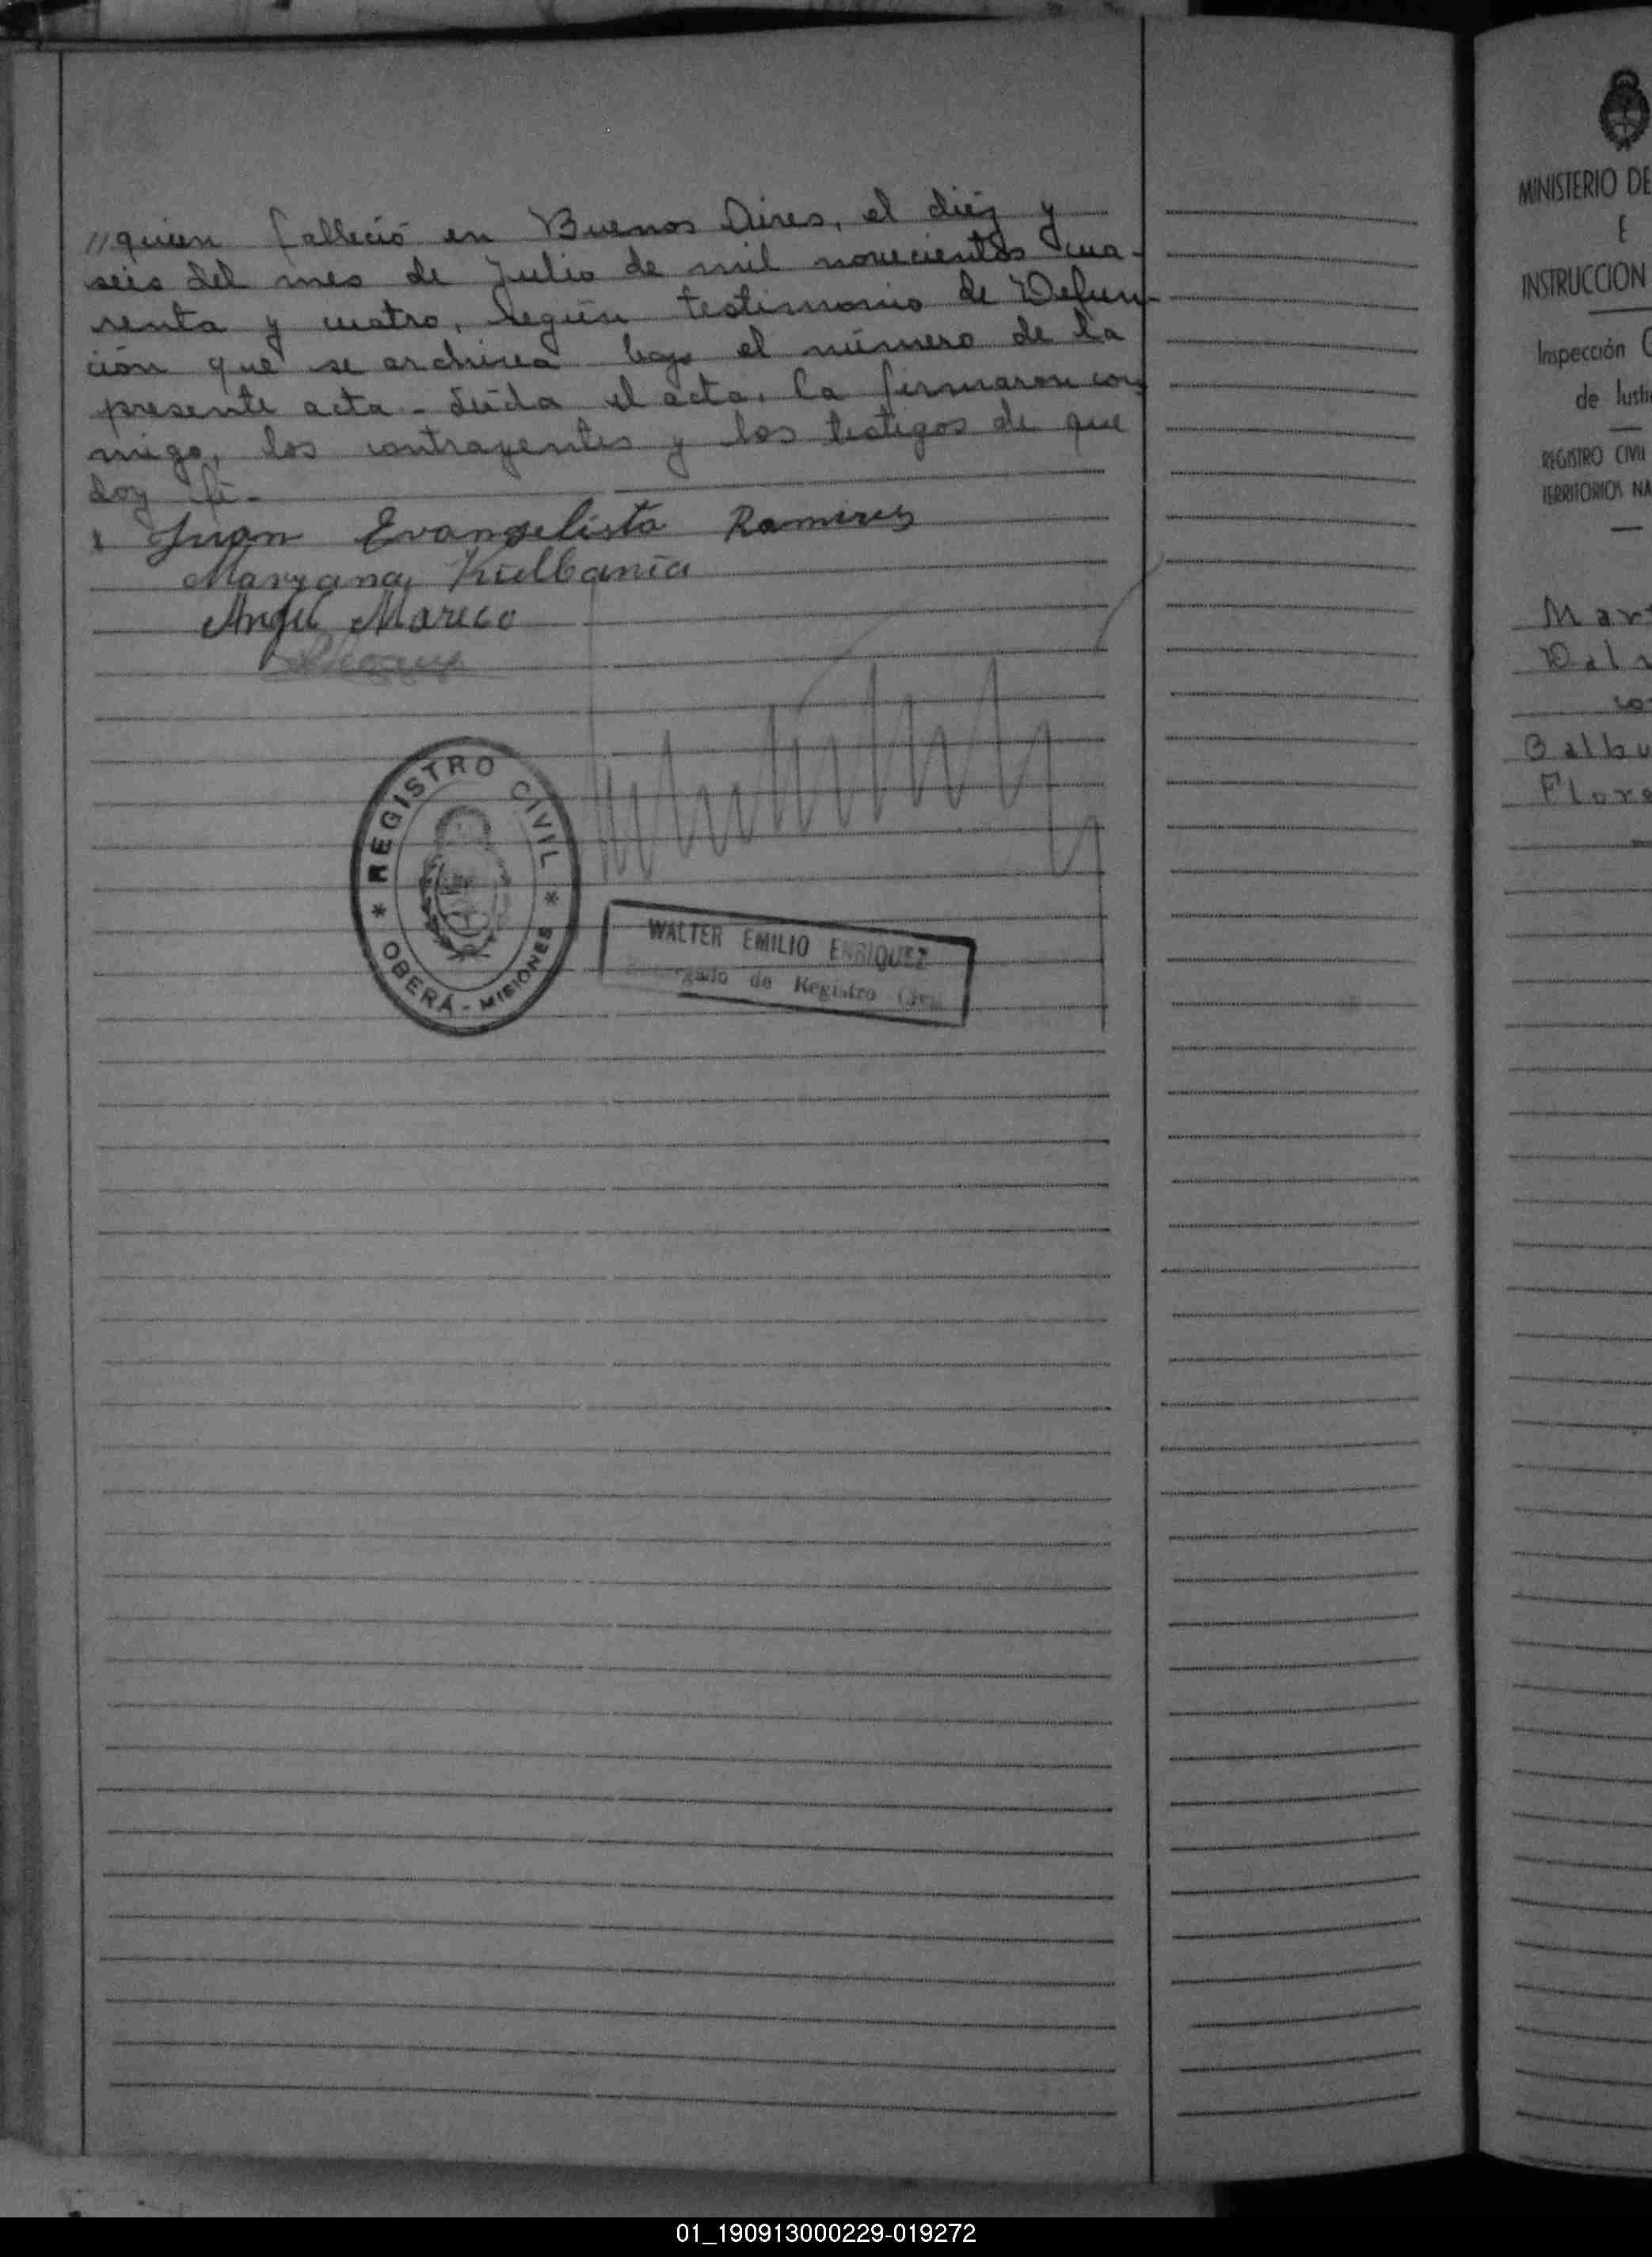 //quien falleció en Buenos Aires, el diez y
seis del mes de Julio de mil novecientos cua-
renta y cuatro, según testimonio de Defun-
ción que se archiva bajo el número de la
presente acta - Leída el acta, la firmaron con
migo, los contrayentes y los testigos de que
doy fé.-
Juan Evangelista Ramirez
Maryana Kielbania
Angel Mareco
REGISTRO CIVIL
* OBERÁ - MISIONES *
WALTER EMILIO ENRIQUEZ
Encargado de Registro Civil
MINISTERIO DE
E
INSTRUCCION
Inspección G
de Justi
REGISTRO CIVIL
TERRITORIOS NA
Mar
Balbu
Flore
01_190913000229-019272